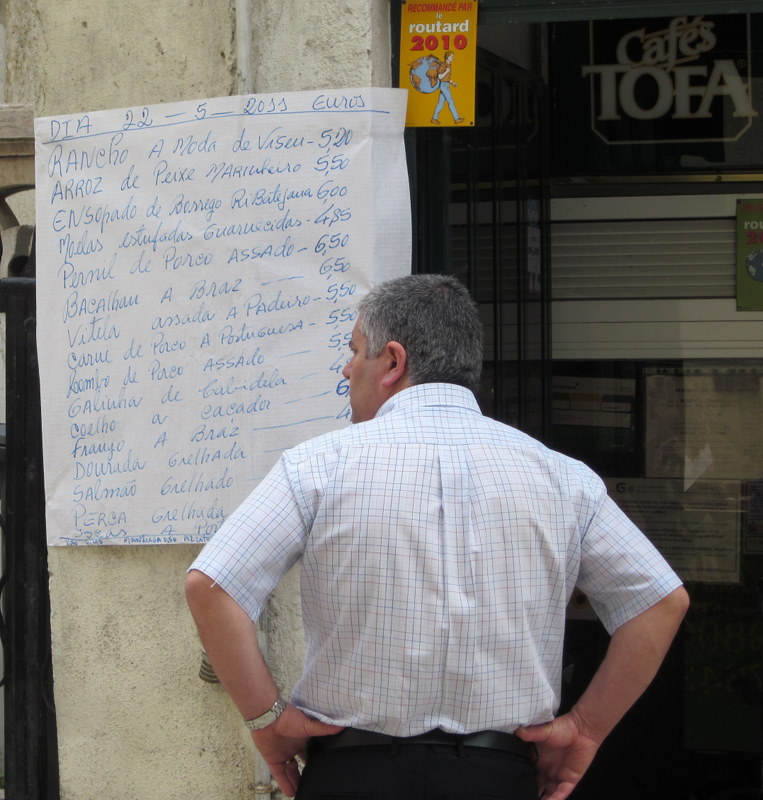 RECOMMANDÉ PAR
le
routard
2010
Cafés
TOFA
DIA 22 - 5 - 2011 Euros
RANCHO A Moda de Viseu - 5,20
ARROZ de Peixe MARinheiro 5,50
ENSopado de Borrego RiBatejana 6,00
Moelas estufadas Guarnecidas - 4,85
Pernil de Porco ASSADO - 6,50
BACAlhau A BRAZ — 6,50
Vitela assada A PAdeiro - 5,50
Carne de Porco A Portuguesa - 5,50
Lombo de Porco ASSADO —
GALinha de Cabidela
Coelho a caçador —
Frango A BRáz —
DOURADA Grelhada
SALMÃO Grelhado
PERCA Grelhada